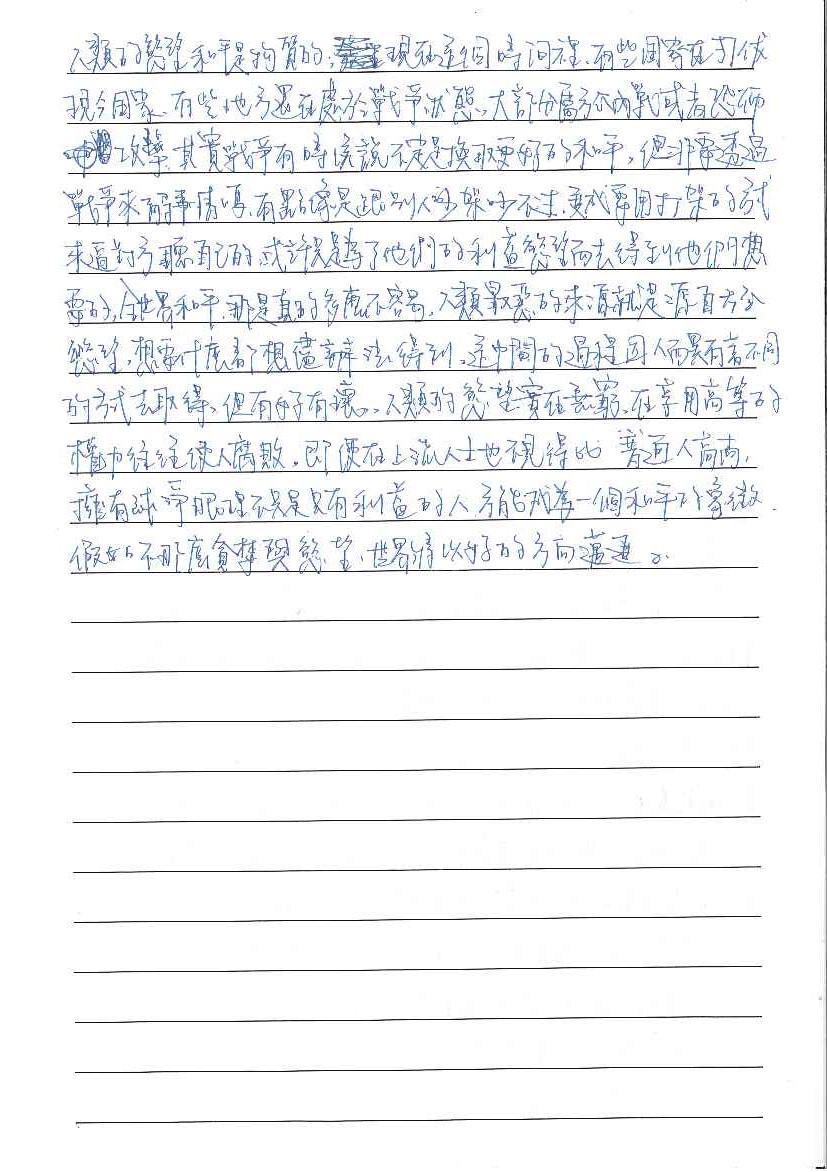 人類的慾望和平是物質的,現在這個時間裡,有些國家在打伏
現今國家、有些地方還在處於戰爭狀態、大部份屬於內戰或者恐怖
攻擊,其實戰爭有時候說不定是換取更好的和平,但非要透過
戰爭來解事情嗎,有點像是跟別人吵架吵不過,變成要用打架的方式
來逼對方聽自己的,或許只是為了他們的利益慾望而去得到他們想
要的,全世界和平,那是真的多麼不容易,人類最惡的來源就是源自於
慾望,想要什麼都想儘辦法得到,這中間的過程因人而異有著不同
的方式去取得,但有好有壞。人類的慾望實在無窮,在享用高等的
權力往往使人腐敗。即便在上流人士也不見得比普通人高尚,
擁有 淨眼裡不只是只有利益的人才能成為一個和平的象徵.
假如不那麼貪婪與慾望、世界將以好的方向邁進。